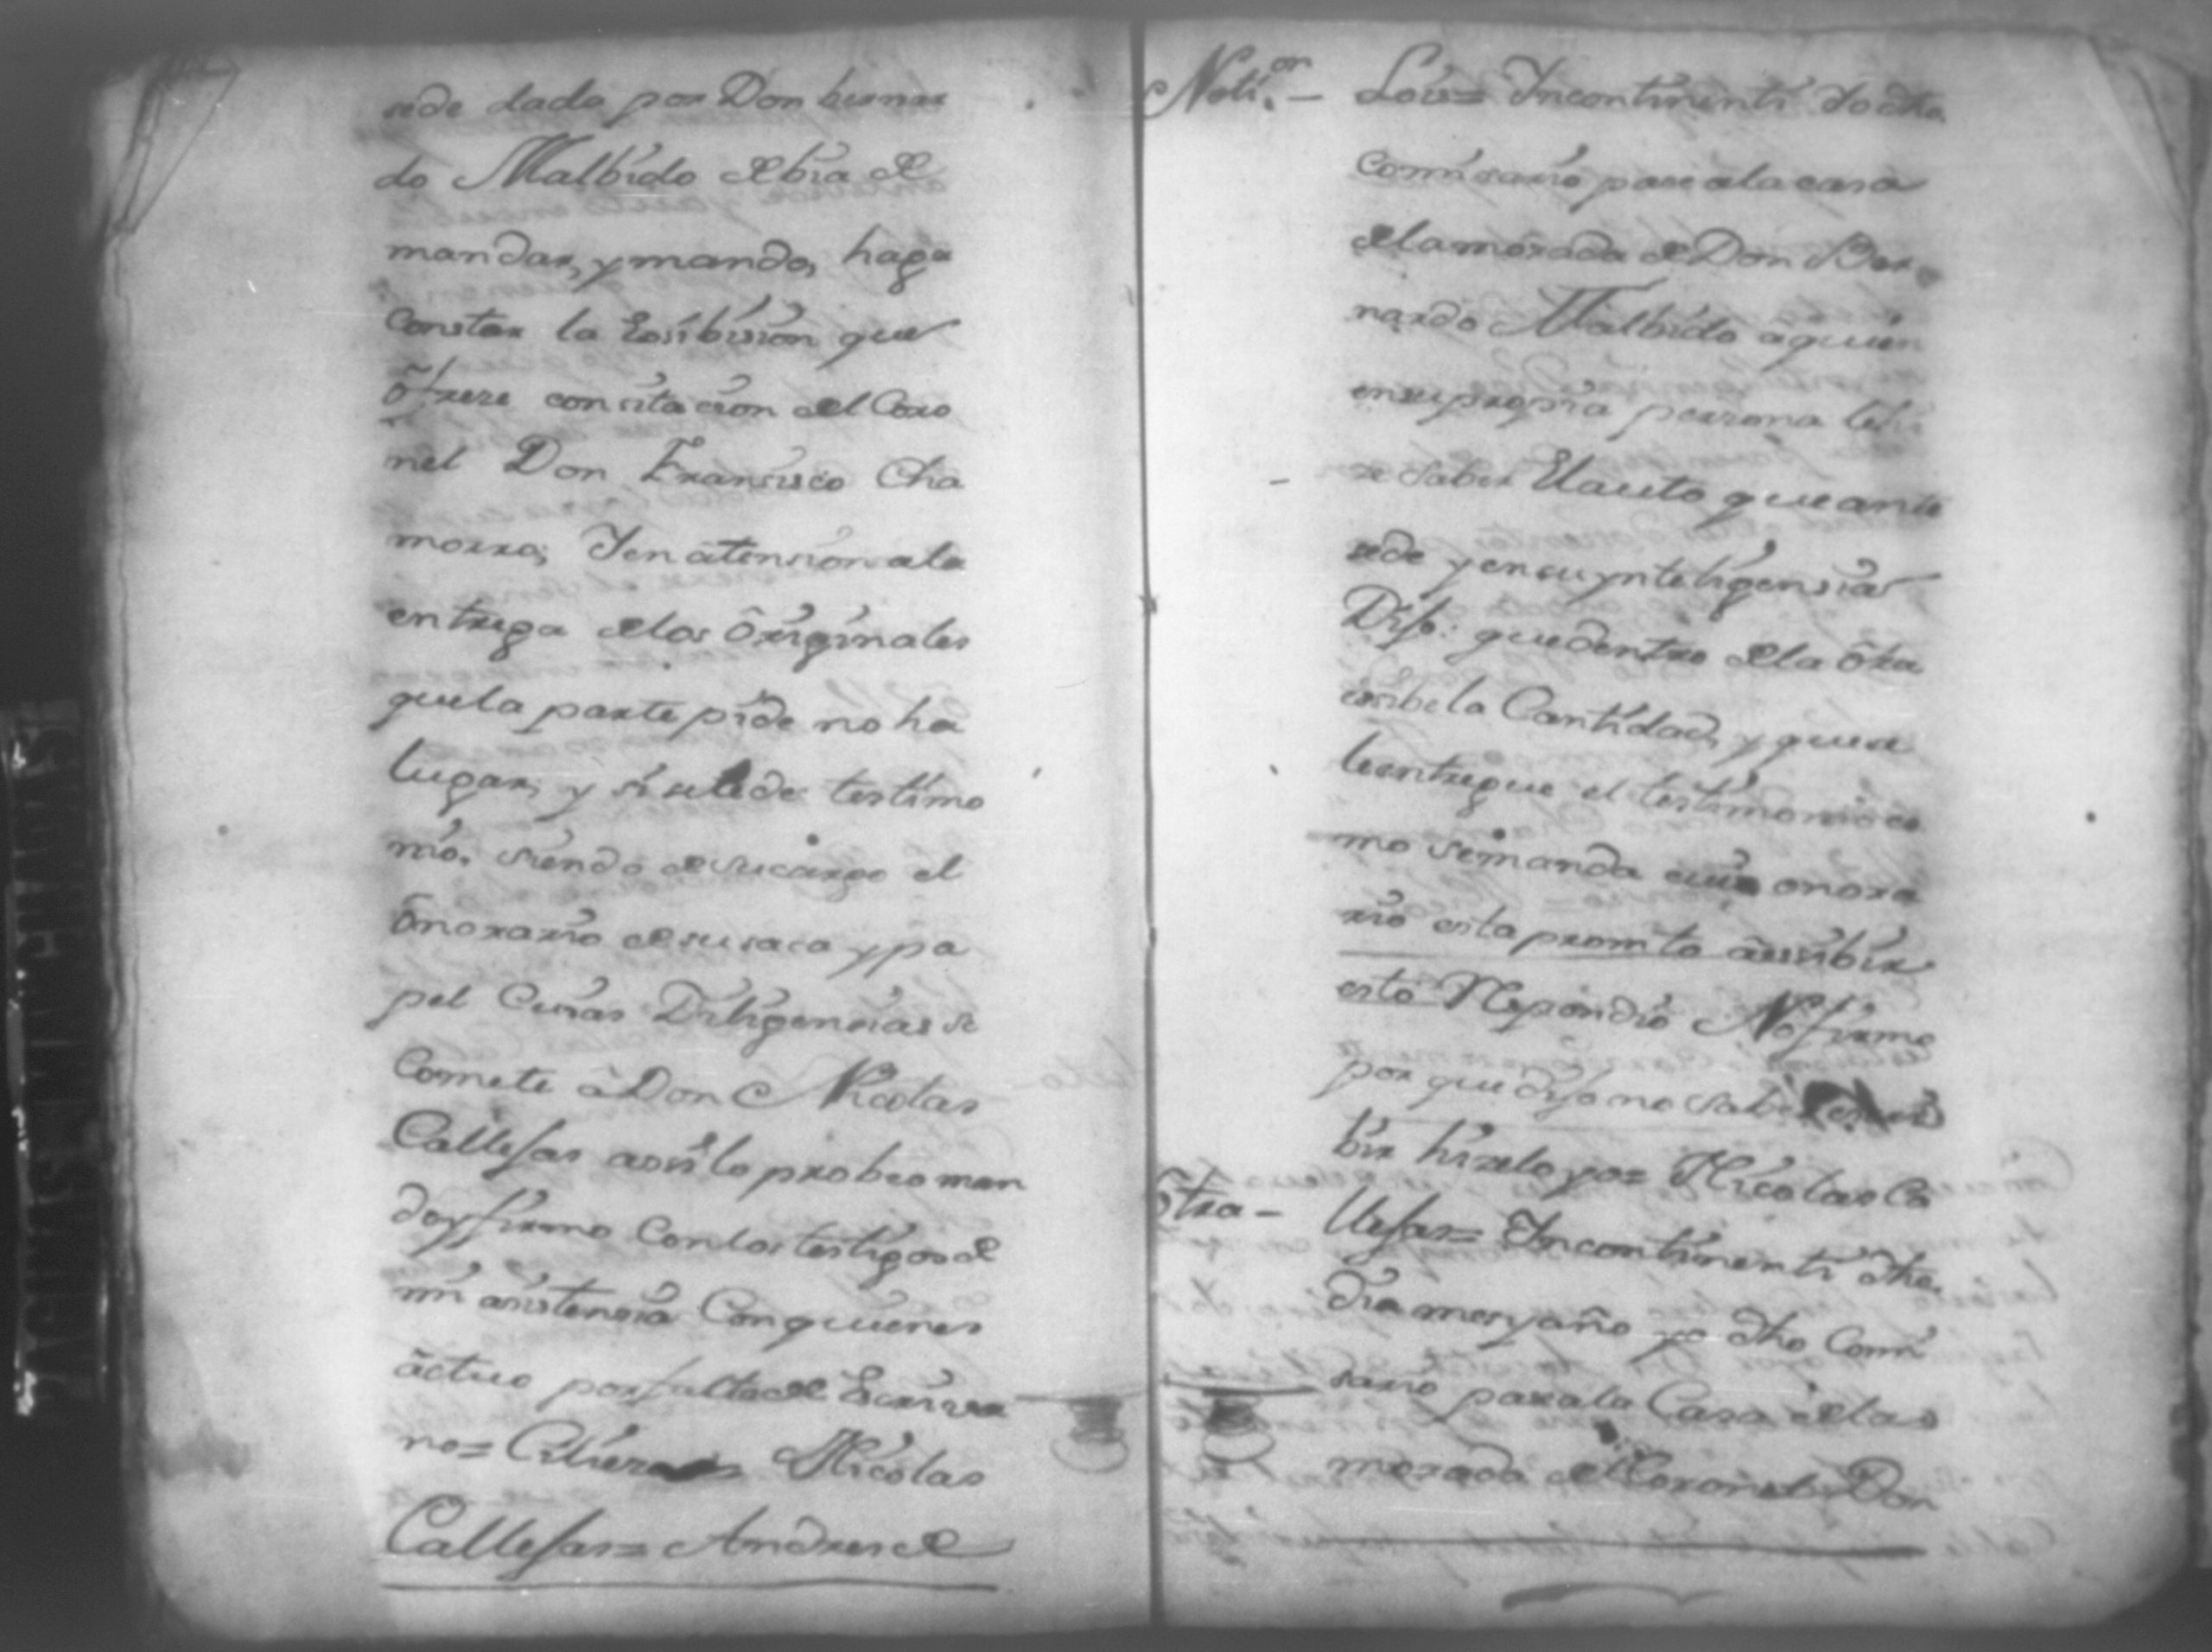 sede dada por Don bernar
do Malbido debia de
mandar, y mando, haga
Constar la Essibision que
ôfrere con sita cion del Coro
nel Don Fransisco Cha
morro; Y en atension ala
entrega delos ôriginales
que la parte pide no ha
lugar, y si se le de testimo
nio, siendo de su cargo el
ônorario de su saca y pa
pel Cuias Diligensias se
Comete â Don Nicolas
Callejas assi lo probeo man
do y firmo Con los testigos de
mi asistensia Con quienes
âctuo por falta de Escriva
no= Nicolas
Callejas= Andres de
Noti.on - Lois= Incontinenti Yo dho
Comisario pase ala casa
dela morada de Don Ber
nardo Malbido a quien
en su propria persona le hi
se saber El auto que ante
sede y en su ynteligensia
Dijo: que dentro dela ôra
essibe la Cantidad, y que se
le entregue el testimonio co
mo se manda cuio onora
rio esta promto â essibir
esto Respondio No firmo
por que dijo no saber escri
bir hiselo yo= Nicolas Ca
ôtra - llejas= Incontinenti dho.
dia mes y año yo dho Comi
sario pase ala Casa dela
morada del Coronel Don